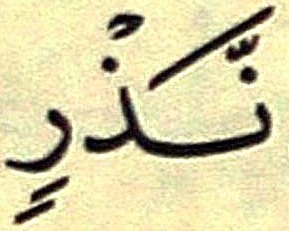 نَّذۡرٍ